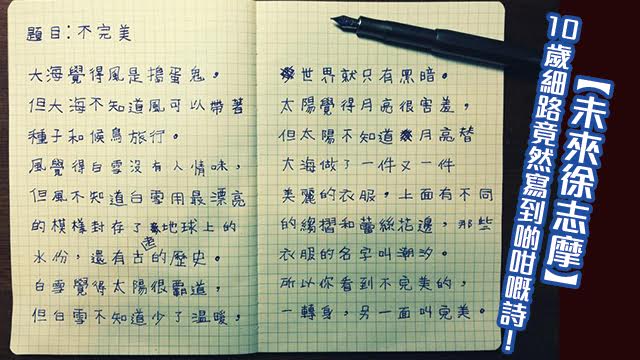 題目：不完美
大海覺得風是搗蛋鬼。
但大海不知道風可以帶著
種子和候鳥旅行。
風覺得白雪沒有人情味，
但風不知道白雪用最漂亮
的模樣封存了地球上的
水份，還有古老的歷史。
白雪覺得太陽很霸道，
但白雪不知道少了溫暖，
世界就只有黑暗。
太陽覺得月亮很害羞，
但太陽不知道月亮替
大海做了一件又一件
美麗的衣服，上面有不同
的縐摺和蕾絲花邊，那些
衣服的名字叫潮汐。
所以你看到不完美的，
一轉身，另一面叫完美。
【未來徐志摩】
10歲細路竟然寫到啲咁嘅詩！